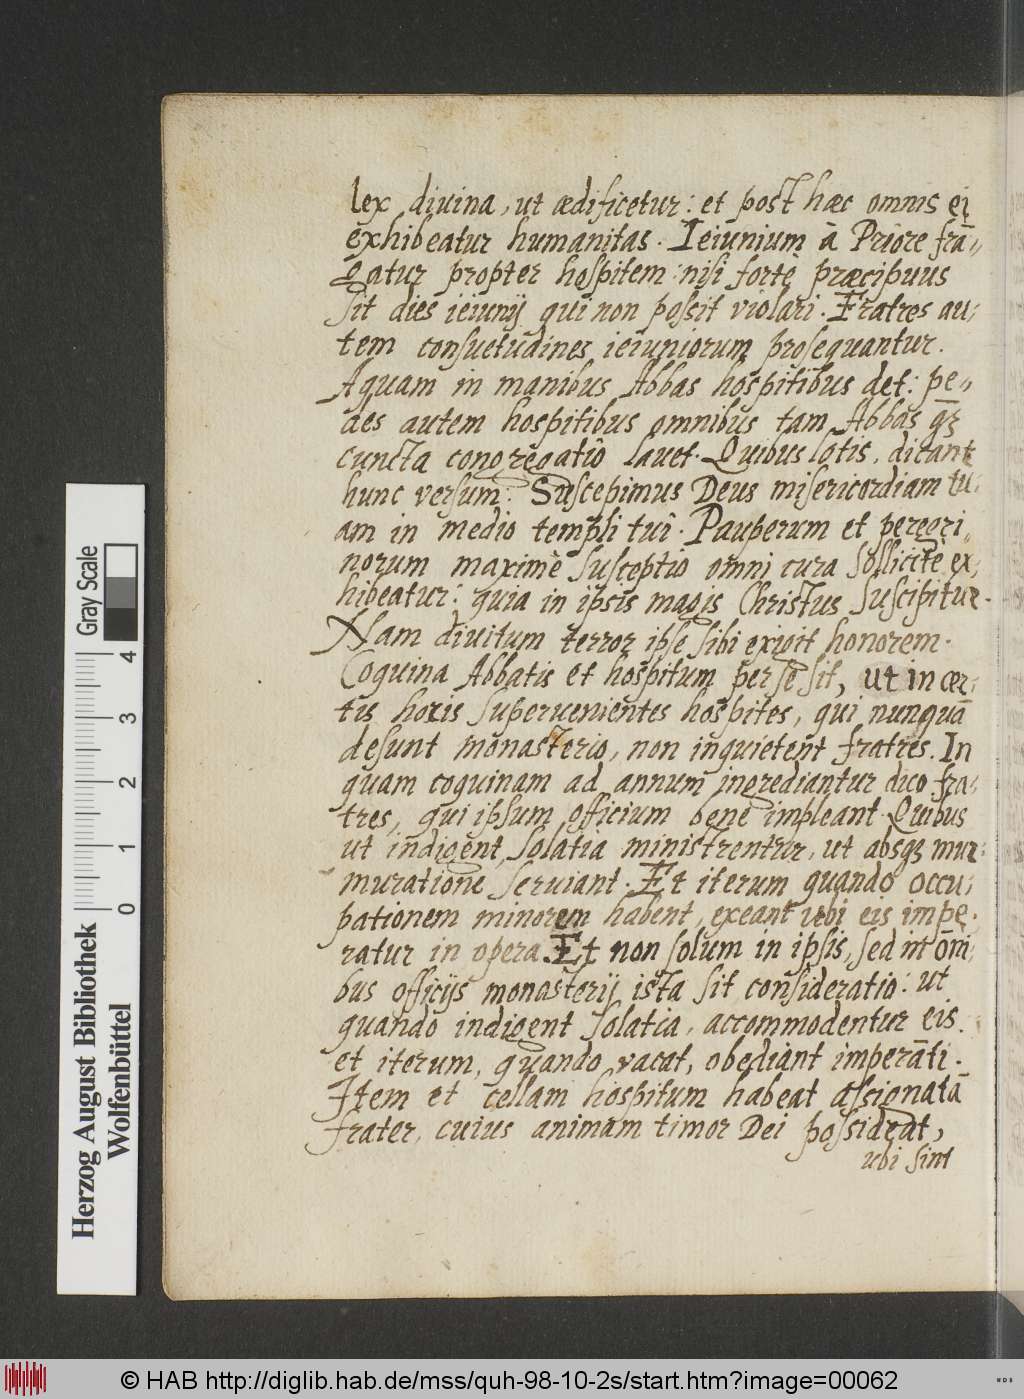 lex diuina, ut ædificetur: et post hæc omnis ei
exhibeatur humanitas. Ieiunium à Priore frā-
gatur propter hospitem: nisi fortè præcipuus
sit dies ieiunij qui non possit violari. Fratres au-
tem consuetudines ieiuniorum prosequantur.
Aquam in manibus Abbas hospitibus det: pe-
des autem hospitibus omnibus tam Abbas q̄ꝫ
cuncta congregatio lauet. Quibus lotis, dicant
hunc versum: Suscepimus Deus misericordiam tu-
am in medio templi tui. Pauperum et peregri-
norum maximè susceptio omni cura sollicitè ex-
hibeatur: quia in ipsis magis Christus suscipitur.
Nam diuitum terror ipse sibi exigit honorem.
Coquina Abbatis et hospitum per se sit, ut in cer-
tis horis superuenientes hospites, qui nunquā
desunt monasterio, non inquietent fratres. In
quam coquinam ad annum ingrediantur duo fra-
tres, qui ipsum officium bene impleant. Quibus
ut indigent, solatia ministrentur, ut absqꝫ mur-
muratione seruiant. Et iterum quando occu-
pationem minorem habent, exeant ubi eis impe-
ratur in opera. Et non solum in ipsis, sed in om̄i-
bus officijs monasterij ista sit consideratio: ut
quando indigent solatia, accommodentur eis.
et iterum, quando vacat, obediant imperāti.
Item et cellam hospitum habeat assignatā
frater, cuius animam timor Dei possideat,
ubi sint
Gray Scale
4
3
2
1
0
Herzog August Bibliothek
Wolfenbüttel
© HAB http://diglib.hab.de/mss/quh-98-10-2s/start.htm?image=00062